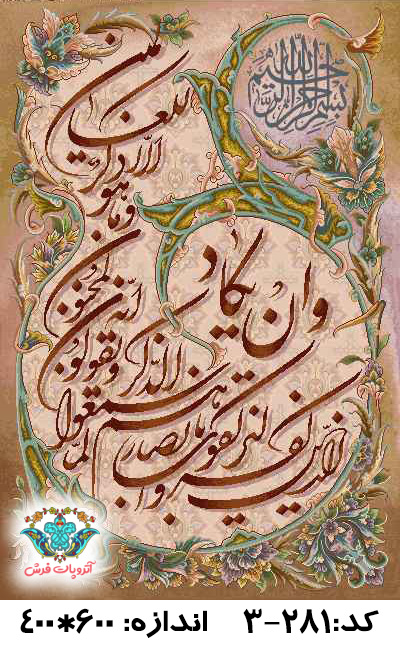 بسم الله الرحمن الرحیم
وان یکاد
الذین کفروا لیزلقونک بابصارهم
لما سمعوا الذکر ویقولون
انه لمجنون
وما هو الا ذکر
للعالمین
آتروپات فرش
کد:۲۸۱-۳ اندازه: ۶۰۰*۴۰۰